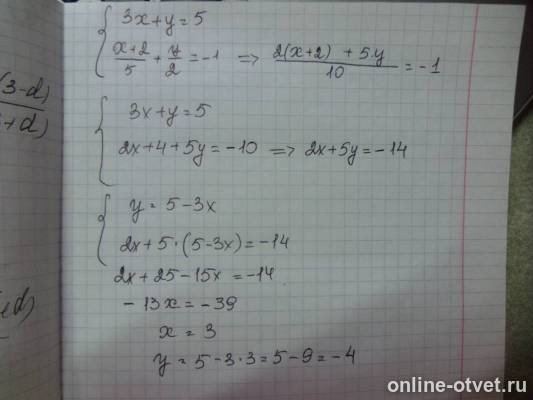 3x+y=5
(x+2)/5 + y/2 = -1 => (2(x+2) + 5·y)/10 = -1
3x+y=5
2x+4+5y=-10 => 2x+5y=-14
y=5-3x
2x+5·(5-3x)=-14
2x+25-15x=-14
-13x=-39
x=3
y=5-3·3=5-9=-4
(3-d)
+d)
online-otvet.ru